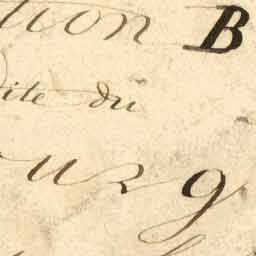 tion B
dite du
ourg